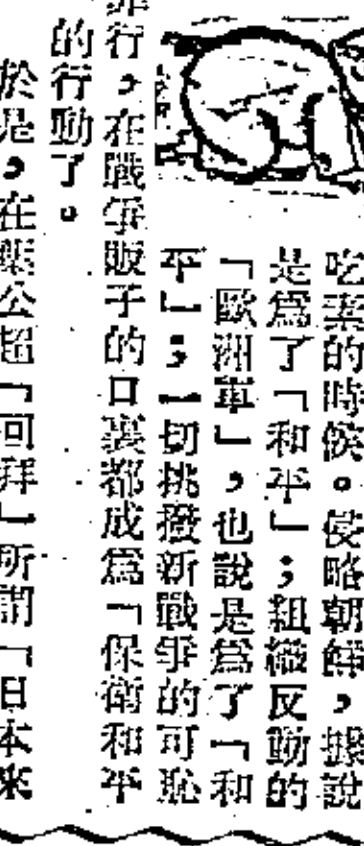 吃素的時候。侵略朝鮮，據說
是爲了「和平」；組織反動的
「歐洲軍」，也說是爲了「和
平」；一切挑撥新戰爭的可恥
行，在戰爭販子的口裏都成爲「保衛和平
的行動了。
於是，在葉公超「回拜」所謂「日本來